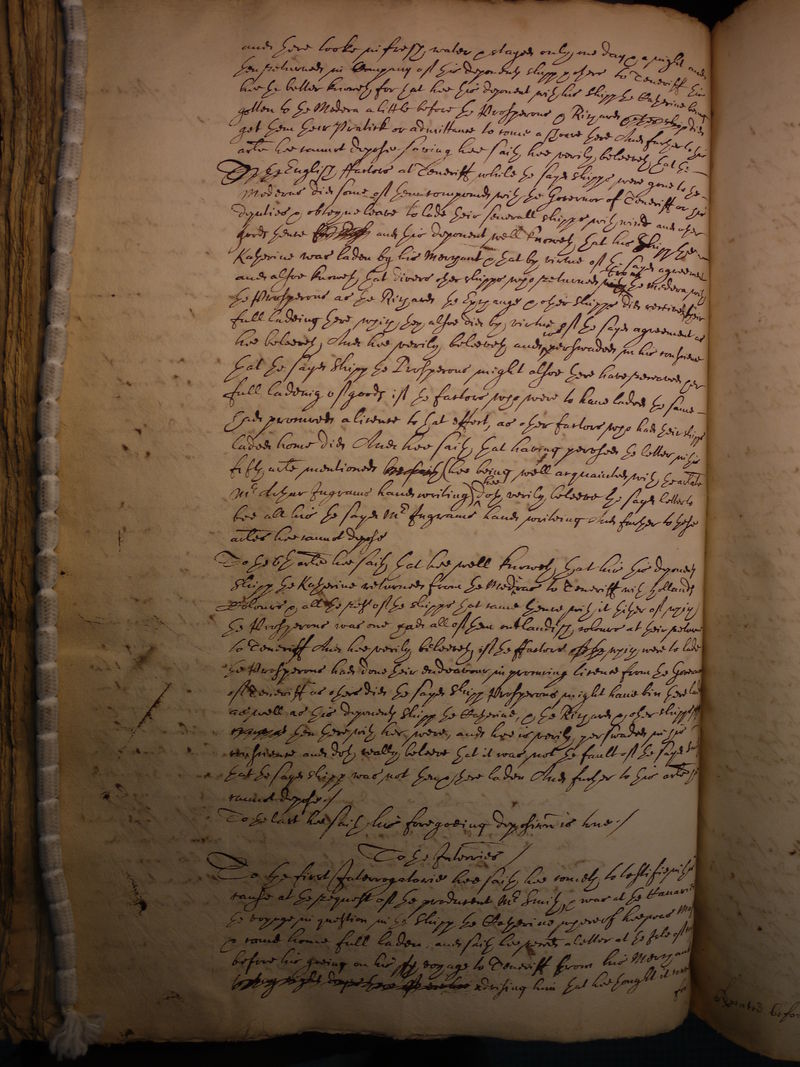 and there tooke in fresh water & stayed only one day & a night and
then returned in Company of his deponents shipp & others to Teneriff this
hee the better knoweth for that hee this deponent with his shipp the Katherine being
gotten to the Madera a little before the Prosperous & Richard did
get them their Pratick or admittance to come ashoare there And further to this
arle hee cannot depose saving hee saith hee verily beleeveth that the
To the English ffactors at Teneriff while the sayd shipps were gone to the
Maderas did some of them compound with the Governor of Teneriff or his
deputies & obteyne leave to lade their severall shipps with wines and other
goods thence and this deponent well knoweth that his shipp the
Katherine was laden by his Merchant & that by virtue of the sayd agreement
and alsoe knoweth that divers other shipps who returned from the Madera with
the Prosperous as the Richard the Exchange & other shipps did receive their
full ladeing there, which they alsoe did by virtue of the sayd agreement as
hee beleeveth, And hee verily beleeveth and is perswaded in his conscience
that the sayd shipp the Prosperous might alsoe there have received her
full ladeing of goods if the factors who were to have laded the same
had procured a licence to that effect, as other factors who had their shipps
laden home did And hee saith that having perused the letter in this
fifth arle mentioned (hee being well acquainted with the arlate
Mr Arthur Ingrams handwriting) hee doth verily beleeve the sayd letter to
bee all his the sayd Mr Ingrams hand writeing And further to these
arles hee cannot depose
To the 6th arle hee saith that hee well knoweth that his this deponents
shipp the Katherine returned from the Maderas to Teneriff with hollands
Colours & all the rest of the shipps that came thence with it hither of which
the Prosperous was one had all of them outlandish colours at their returne
to Teneriff And hee verily beleeveth if the ffactors which were to lade
the Prosperous had done their endeavour in procuring licence from the Governor
of Teneriff as others did the sayd shipp Prosperous might have bin there laden
as well as this deponents shipp the Katherine, & the Richard & other shipps
then there with her were, and hee is verily perswaded in his
conscience and doth really beleeve that it was not the fault of the sayd
that the sayd shipp was not then & there laden And further to this arle
cannot depose./
To the last hee saith his foregoeing deposition is true./
To the Interries /
To the first Interrogatorie hee saith hee cometh to testifie in this
cause at the request of the producent Mr Smith, & was at the Canaries
the voyage in question in the shipp the Katherine whereof hee was Master
& came home full laden, and saith hee received a letter at the Isle of
before his goeing on his voyage to Teneriff from his Merchant
advising him that hee thought it
for